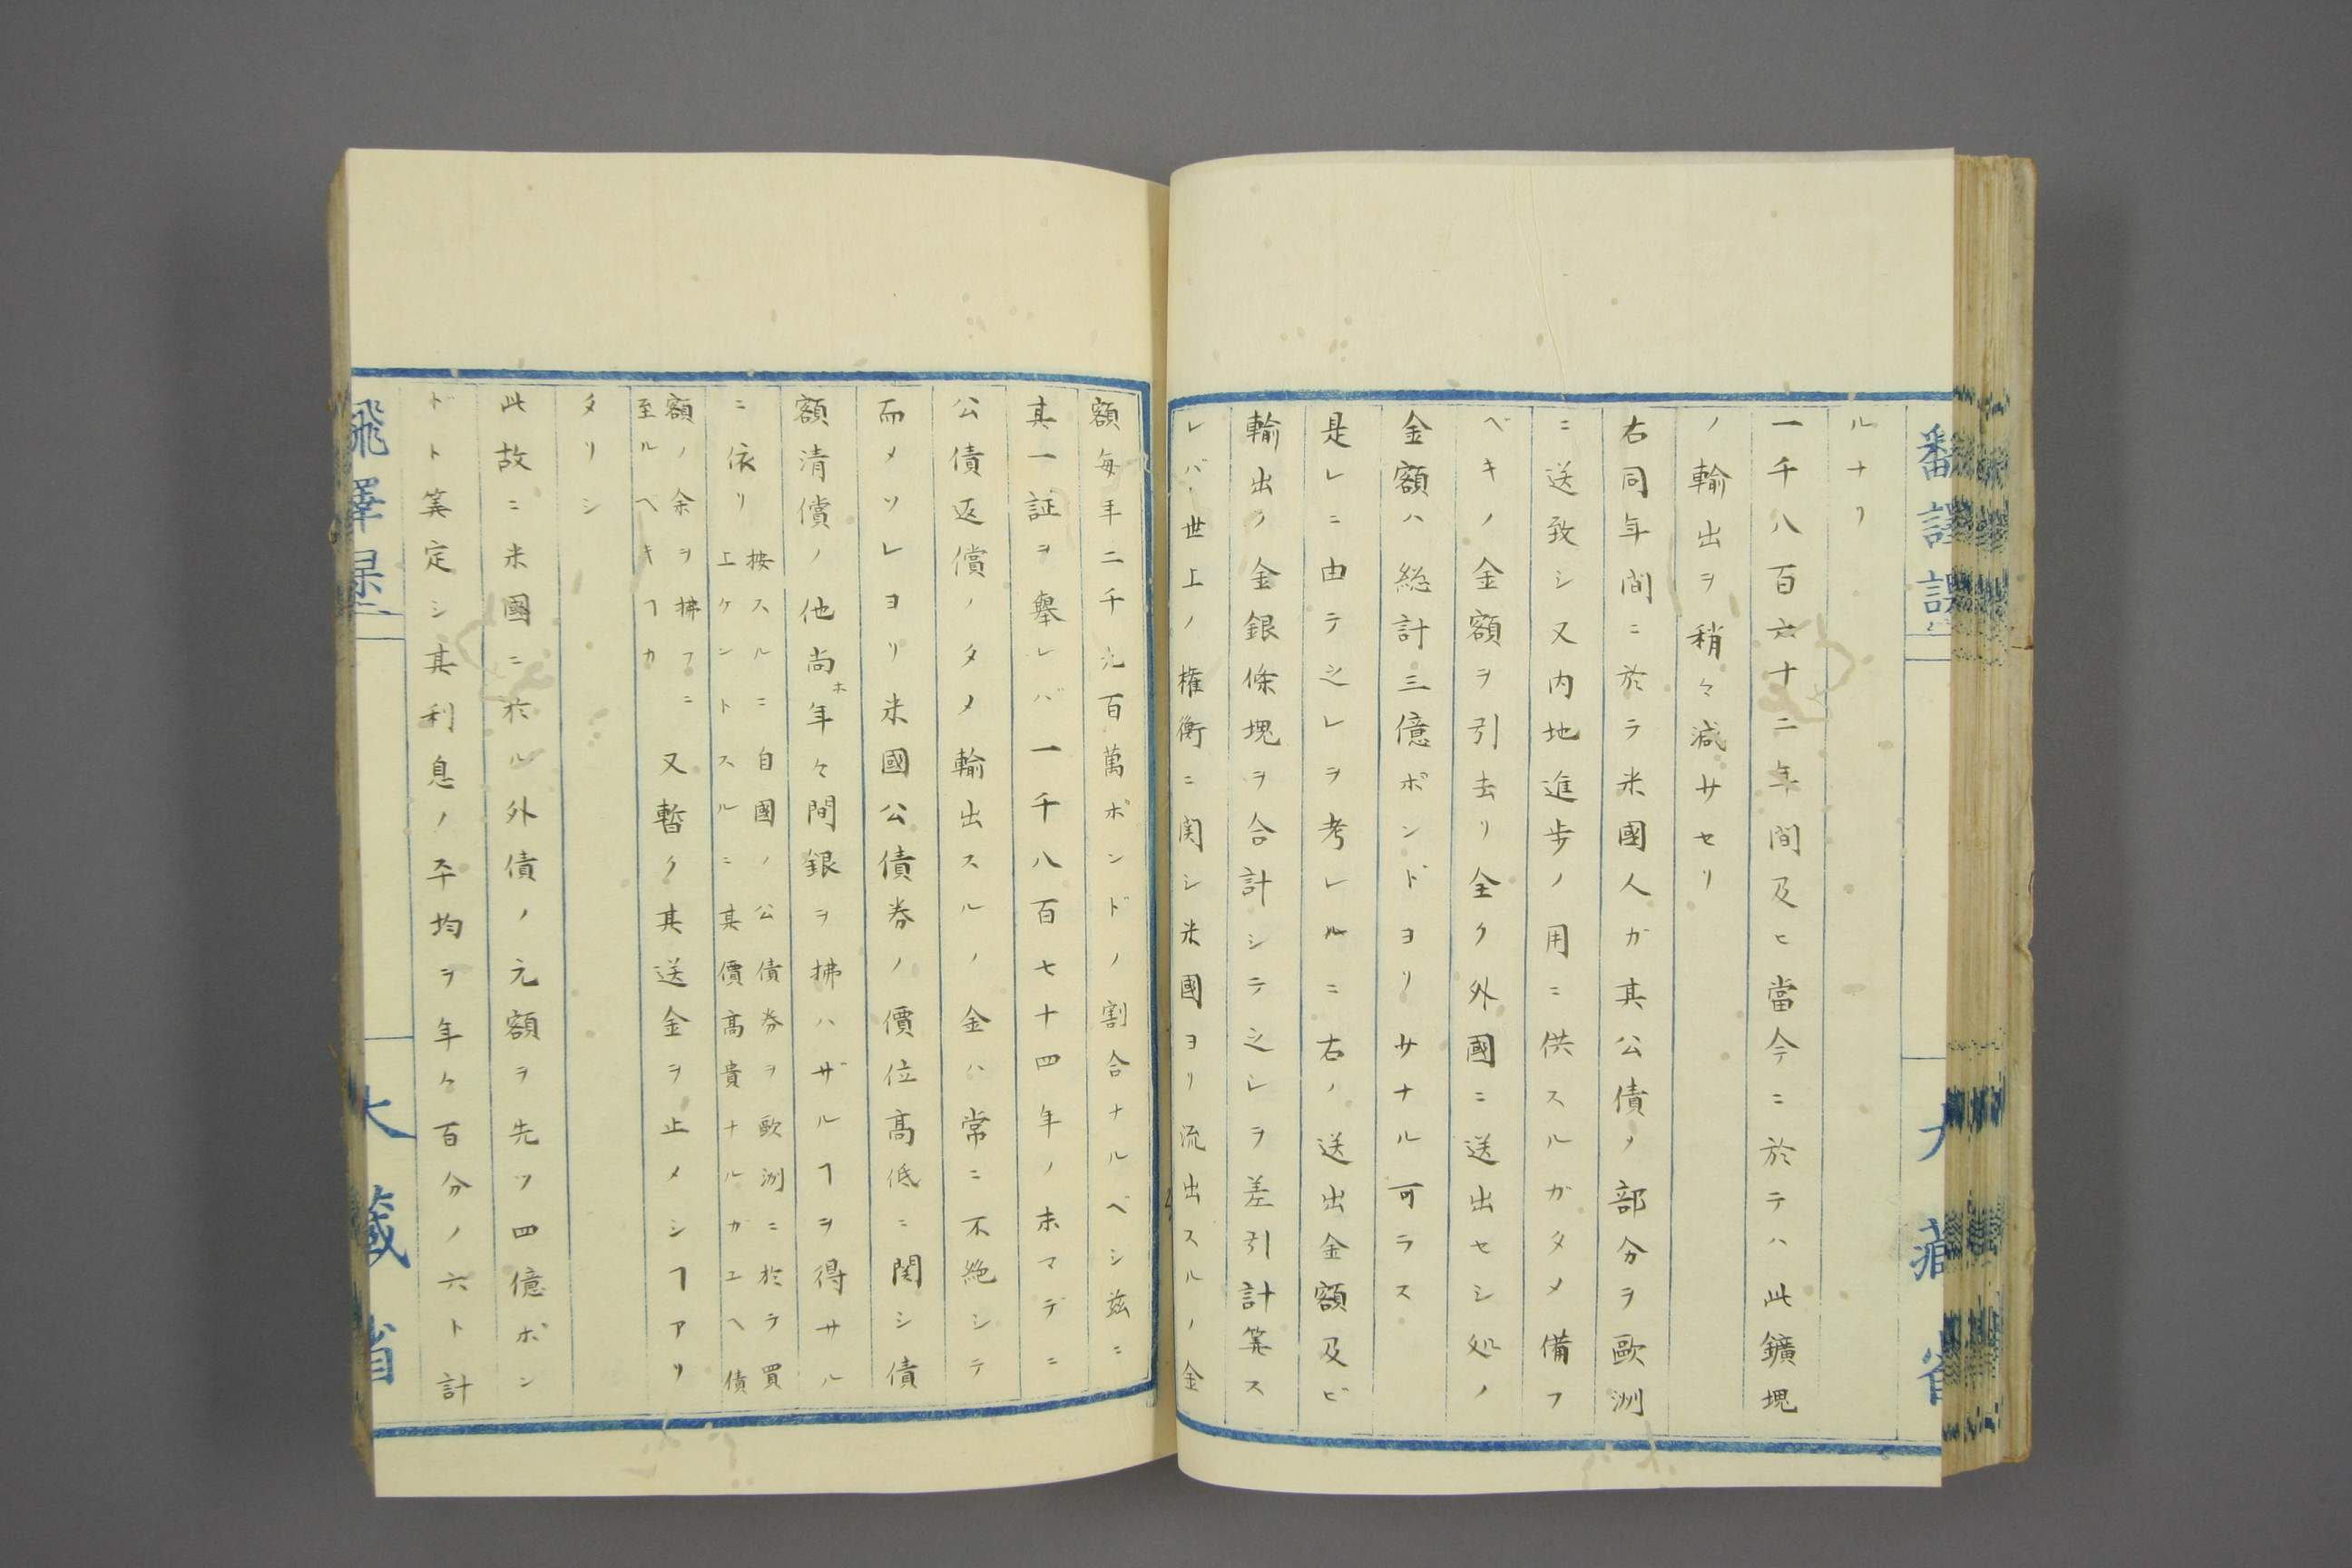 ルナリ
一千八百六十二年間及ヒ當今ニ於テハ此鑛塊
ノ輸出ヲ稍々減サセリ
右同年間ニ於ラ米國人ガ其公債ノ部分ヲ歐洲
ニ送致シ又内地進歩ノ用ニ供スルガタメ備フ
ベキノ金額ヲ引去リ全ク外國ニ送出セシ処ノ
金額ハ総計三億ボンドヨリサナル可ラス
是レニ由テ之レヲ考レルニ右ノ送出金額及ビ
輸出ノ金銀條塊ヲ合計シテ之レヲ差引計筭ス
レバ世上ノ権衡ニ関シ米國ヨリ流出スルノ金
額毎年二千九百萬ボンドノ割合ナルベシ茲ニ
其一証ヲ擧レバ一千八百七十四年ノ末マデニ
公債返償ノタメ輸出スルノ金ハ常ニ不絶シテ
而メソレヨリ米國公債券ノ價位高低ニ関シ債
額清償ノ他尚ホ年々間銀ヲ拂ハザルヿヲ得サル
ニ依リ
按スルニ自國ノ公債券ヲ歐洲ニ於テ買
上ケントスルニ其價高貴ナルガユヘ債
額ノ余ヲ拂フニ
至ルベキヿカ
又暫ク其送金ヲ止メシヿアリ
タリシ
此故ニ米國ニ於ル外債ノ元額ヲ先ツ四億ボン
ドト筭定シ其利息ノ平均ヲ年々百分ノ六ト計